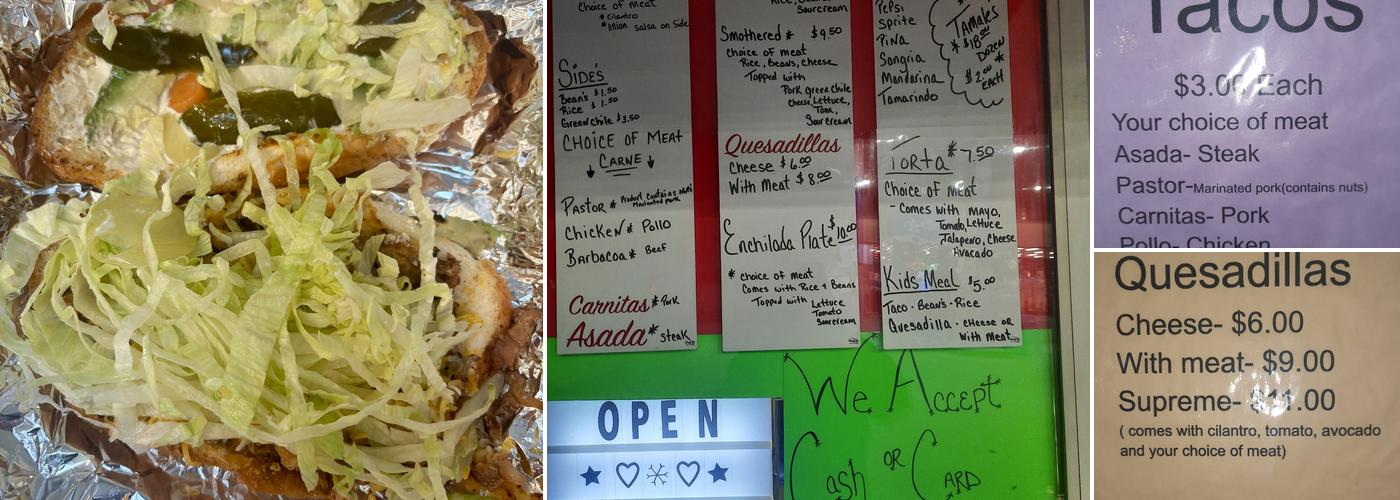 Choice of Meat
*Cilantro
*Onion Salsa on Side
SIDES
Bean's $1.50
Rice $1.50
Green Chile $3.50
CHOICE OF MEAT
CARNE
Pastor * Product Contains Nuts
Marinated pork
Chicken * Pollo
Barbacoa * Beef
Carnitas * Pork
Asada * steak
Rice, Beans,
Sourcream
Smothered * $9.50
Choice of meat
Rice, Beans, Cheese
Topped with
Pork green chile
Cheese, Lettuce,
Tom,
Sourcream
Quesadillas
Cheese $6.00
With Meat $8.00
Enchilada Plate $10.00
* choice of meat
Comes with Rice + Beans
Topped with Lettuce
Tomato
Sourcream
Pepsi
Sprite
Piña
Sangria
Mandarina
Tamarindo
Tamale's
* $18.00
DOZEN *
$2.00
EACH
Torta * 7.50
Choice of meat
- Comes with MAYO,
Tomato, Lettuce
Jalapeño, Cheese
Avocado
Kids Meal $5.00
Taco - Bean's - Rice
Quesadilla - Cheese or
With meat
OPEN
We Accept
Cash OR Card
Tacos
$3.00 Each
Your choice of meat
Asada- Steak
Pastor-Marinated pork(contains nuts)
Carnitas- Pork
Pollo- Chicken
Quesadillas
Cheese- $6.00
With meat- $9.00
Supreme- $11.00
( comes with cilantro, tomato, avocado
and your choice of meat)